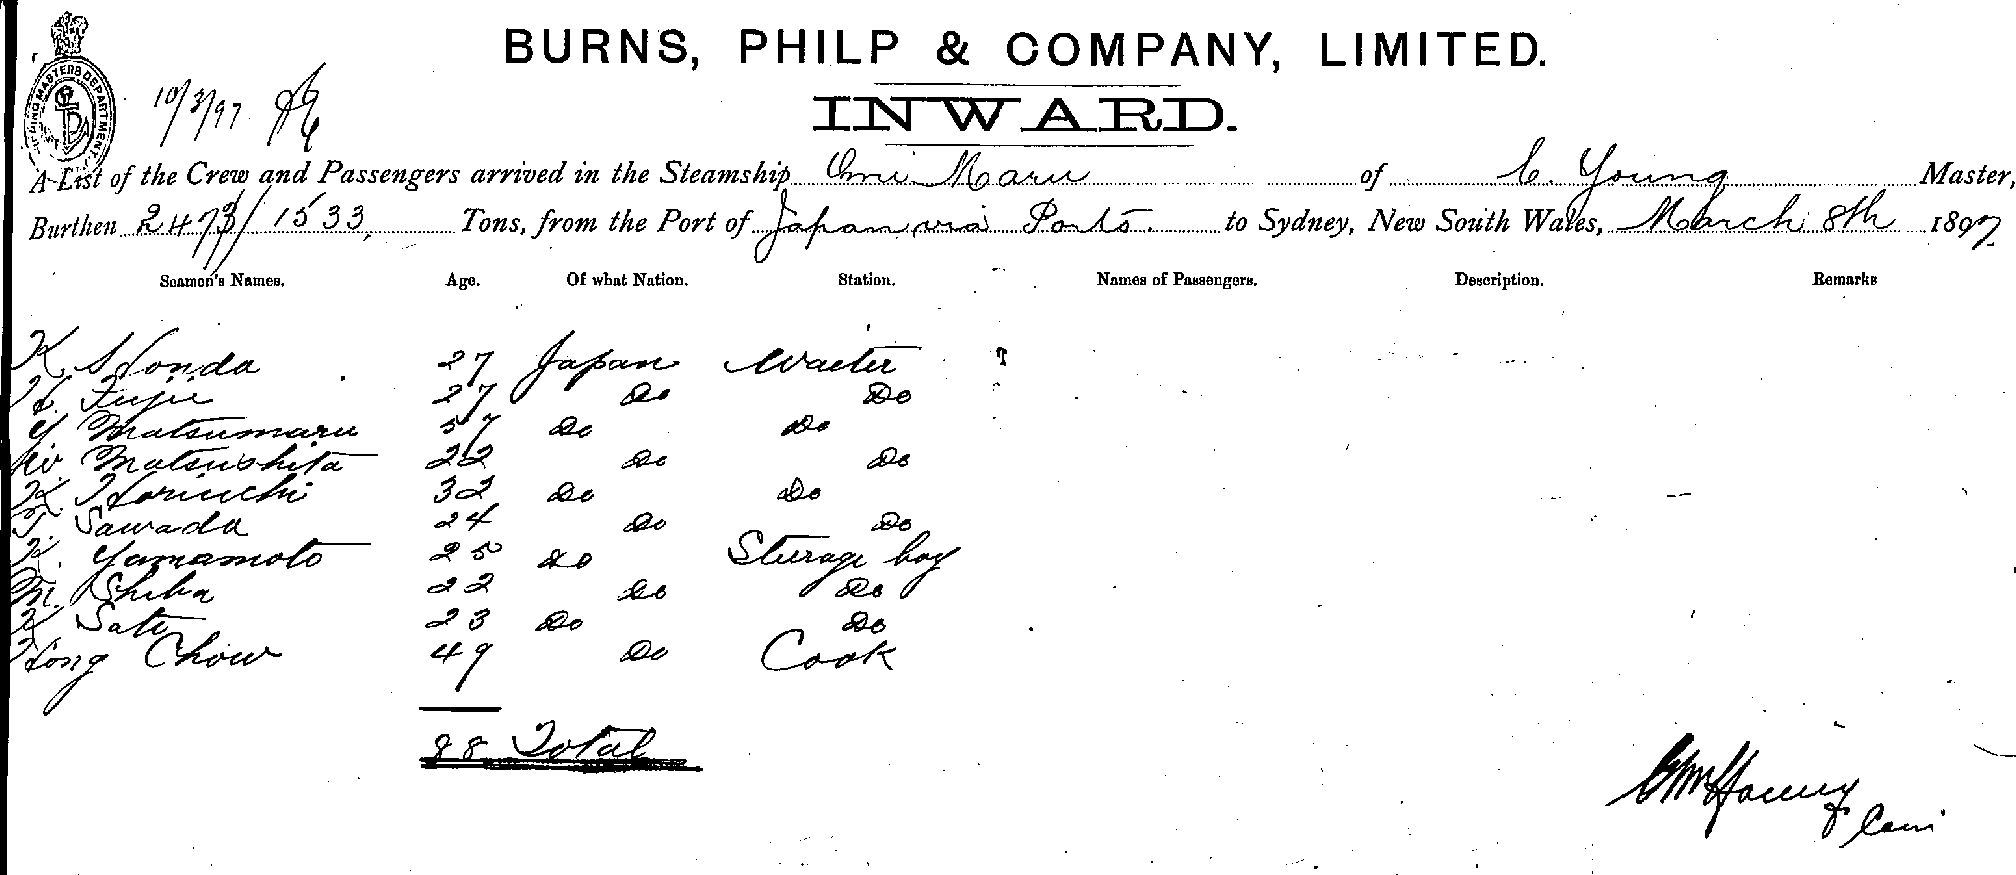 BURNS, PHILP & COMPANY, LIMITED.
INWARD.
SHIPPING MASTERS DEPARTMENT
10/3/97
A List of the Crew and Passengers arrived in the Steamship Omi Maru of C. Young Master,
Burthen 2473/1533, Tons, from the Port of Japan via Ports. to Sydney, New South Wales, March 8th 1897
Seamen's Names. Age. Of what Nation. Station. Names of Passengers. Description. Remarks
K Honda 27 Japan Waiter
Fujii 27 Do Do
Y. Matsumaru 57 Do Do
Matsushita 22 Do Do
K. Horiuchi 32 Do Do
T. Sawada 24 Do Do
K. Yamamoto 25 do Sturage boy
M. Shiba 22 Do Do
K Sato 23 Do Do
Hong Chow 49 Do Cook
88 Total